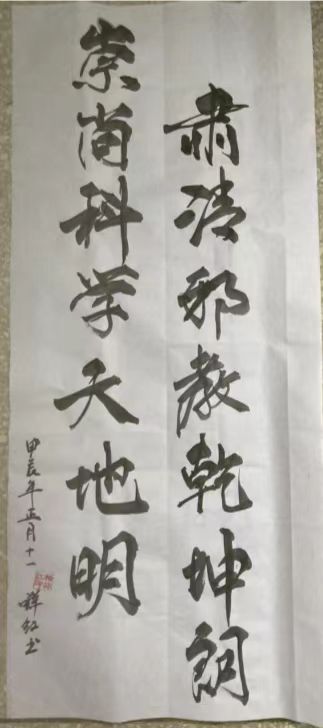 肃清邪教乾坤朗
崇尚科学天地明
甲辰年正月十一 祥红书